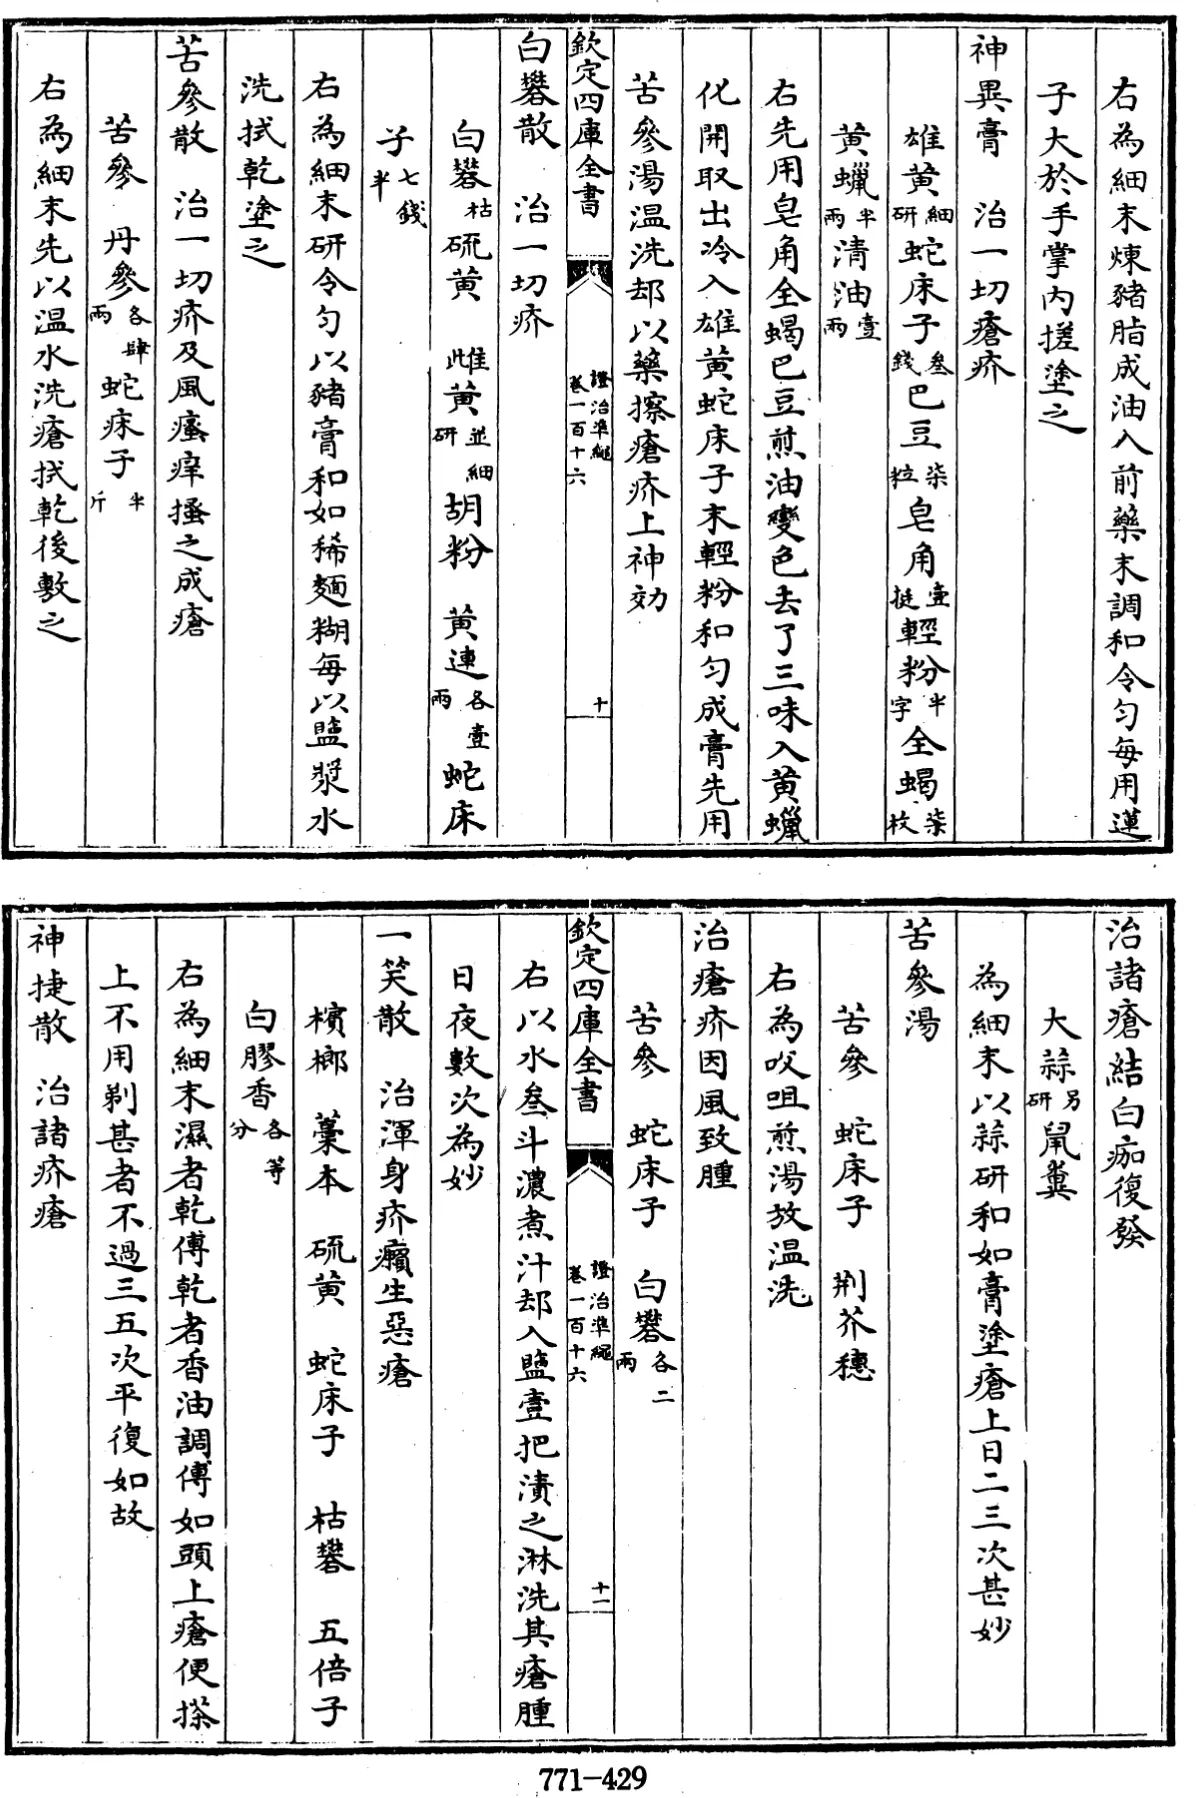 右為細末煉豬脂成油入前藥末調和令勻每用蓮
子大於手掌內搓塗之
神異膏　治一切瘡疥
雄黄細研蛇床子叁錢巴豆柒粒皂角壹挺輕粉半字全蝎柒枚
黄蠟半兩清油壹兩
右先用皂角全蝎巴豆煎油變色去了三味入黄蠟
化開取出冷入雄黄蛇床子末輕粉和勻成膏先用
苦參湯温洗却以藥擦瘡疥上神効
欽定四庫全書　證治準繩卷一百十六　十
白礬散　治一切疥
白礬枯硫黄　雌黄並細研胡粉　黄連各壹兩蛇床
子七錢半
右為細末研令勻以豬膏和如稀麵糊每以鹽漿水
洗拭乾塗之
苦參散　治一切疥及風瘙痒搔之成瘡
苦參　丹參各肆兩蛇床子半斤
右為細末先以温水洗瘡拭乾後敷之
治諸瘡結白痂復發
大蒜另研鼠糞
為細末以蒜研和如膏塗瘡上日二三次甚妙
苦參湯
苦參　蛇床子　荆芥穗
右為㕮咀煎湯放温洗
治瘡疥因風致腫
苦參　蛇床子　白礬各二兩
欽定四庫全書　證治準繩卷一百十六　十一
右以水叁斗濃煮汁却入鹽壹把漬之淋洗其瘡腫
日夜數次為妙
一笑散　治渾身疥癩生惡瘡
檳榔　藁本　硫黄　蛇床子　枯礬　五倍子
白膠香各等分
右為細末濕者乾傅乾者香油調傅如頭上瘡便搽
上不用剃甚者不過三五次平復如故
神捷散　治諸疥瘡
771-429